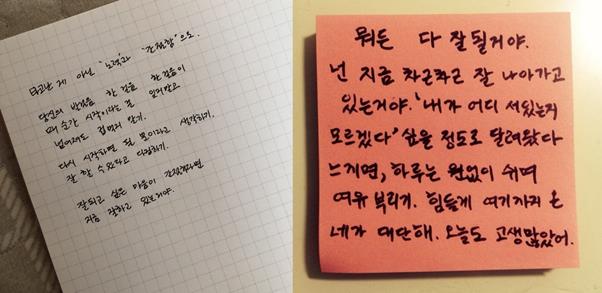 타고난 게 아닌 "노력"과 "간절함"으로.
당신의 발걸음 한 걸음 한 걸음이
매 순간 시작이라는 걸 잊지말고.
넘어져도 겁먹지 말기.
다시 시작하면 될 뿐이라고 생각하기.
잘 할 수 있다고 다짐하기.
잘되고 싶은 마음이 간절하다면
지금 잘하고 있는거야.
뭐든 다 잘될거야.
넌 지금 차근차근 잘 나아가고
있는거야. '내가 어디 서있는지
모르겠다' 싶을 정도로 달려왔다
느끼면, 하루는 원없이 쉬며
여유 부리기. 힘들게 여기까지 온
네가 대단해. 오늘도 고생많았어.